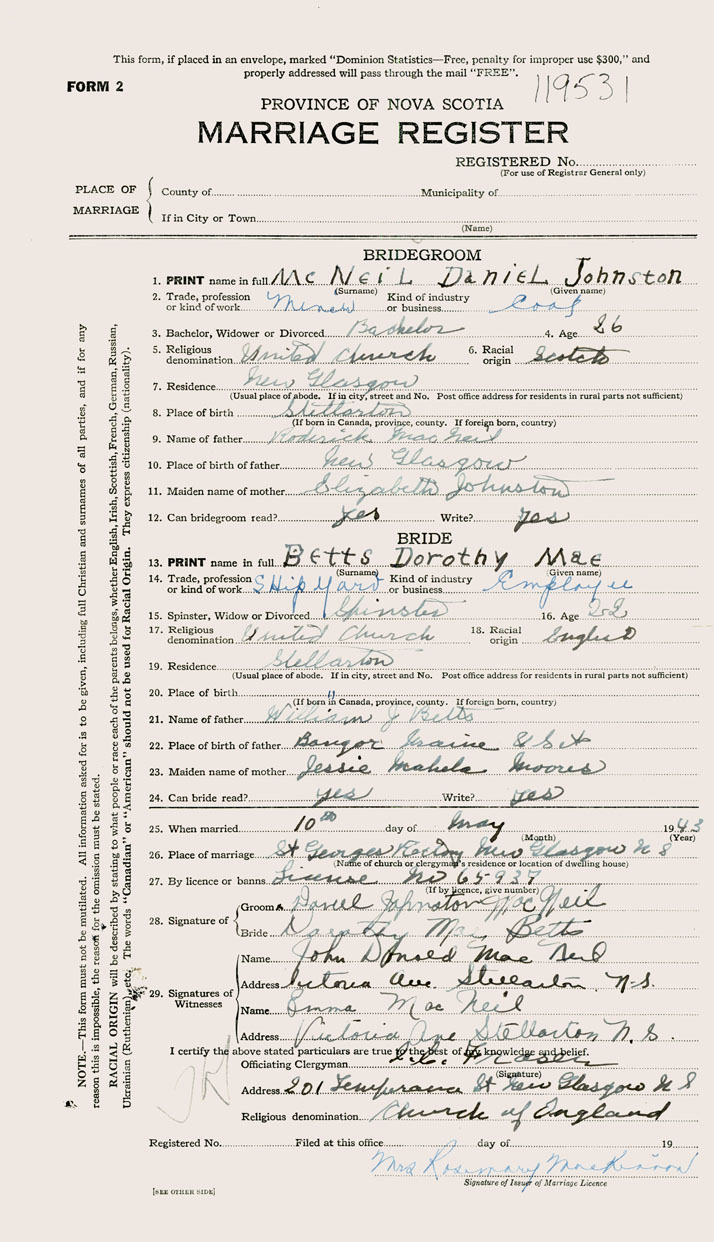 This form, if placed in an envelope, marked "Dominion Statistics—Free, penalty for improper use $300," and
properly addressed will pass through the mail "FREE".
FORM 2
119531
PROVINCE OF NOVA SCOTIA
MARRIAGE REGISTER
REGISTERED No.
(For use of Registrar General only)
PLACE OF MARRIAGE
County of Municipality of
If in City or Town
(Name)
BRIDEGROOM
1. PRINT name in full McNeil Daniel Johnston
(Surname) (Given name)
2. Trade, profession or kind of work Miner Kind of industry or business Coal
3. Bachelor, Widower or Divorced Bachelor 4. Age 26
5. Religious denomination United Church 6. Racial origin Scotch
7. Residence New Glasgow
(Usual place of abode. If in city, street and No. Post office address for residents in rural parts not sufficient)
8. Place of birth Stellarton
(If born in Canada, province, county. If foreign born, country)
9. Name of father Roderick MacNeil
10. Place of birth of father New Glasgow
11. Maiden name of mother Elizabeth Johnston
12. Can bridegroom read? yes Write? yes
BRIDE
13. PRINT name in full Betts Dorothy Mae
(Surname) (Given name)
14. Trade, profession or kind of work SHip Yard Kind of industry or business Employee
15. Spinster, Widow or Divorced Spinster 16. Age 22
17. Religious denomination United Church 18. Racial origin English
19. Residence Stellarton
(Usual place of abode. If in city, street and No. Post office address for residents in rural parts not sufficient)
20. Place of birth "
(If born in Canada, province, county. If foreign born, country)
21. Name of father William J Betts
22. Place of birth of father Bangor Maine
23. Maiden name of mother Jessie Moores
24. Can bride read? yes Write? yes
25. When married 10th day of May 1943
(Month) (Year)
26. Place of marriage St Georges Rectory New Glasgow N S
(Name of church or clergyman's residence or location of dwelling house)
27. By licence or banns License No 65937
(If by licence, give number)
28. Signature of
Groom Daniel Johnston MacNeil
Bride Dorothy Mae Betts
29. Signatures of Witnesses
Name John Donald MacNeil
Address Victoria Ave. Stellarton, N.S.
Name Emma MacNeil
Address Victoria Ave Stellarton N.S.
I certify the above stated particulars are true to the best of my knowledge and belief.
Officiating Clergyman Fraser
(Signature)
Address 201 Temperance St New Glasgow N S
Religious denomination Church of England
Registered No. Filed at this office day of 19
Mrs Rosemary MacKinnon
Signature of Issuer of Marriage Licence
[SEE OTHER SIDE]
NOTE.—This form must not be mutilated. All information asked for is to be given, including full Christian and surnames of all parties, and if for any
reason this is impossible, the reason for the omission must be stated.
RACIAL ORIGIN will be described by stating to what people or race each of the parents belongs, whether English, Irish, Scottish, French, German, Russian,
Ukrainian (Ruthenian), etc. The words "Canadian" or "American" should not be used for Racial Origin. They express citizenship (nationality).